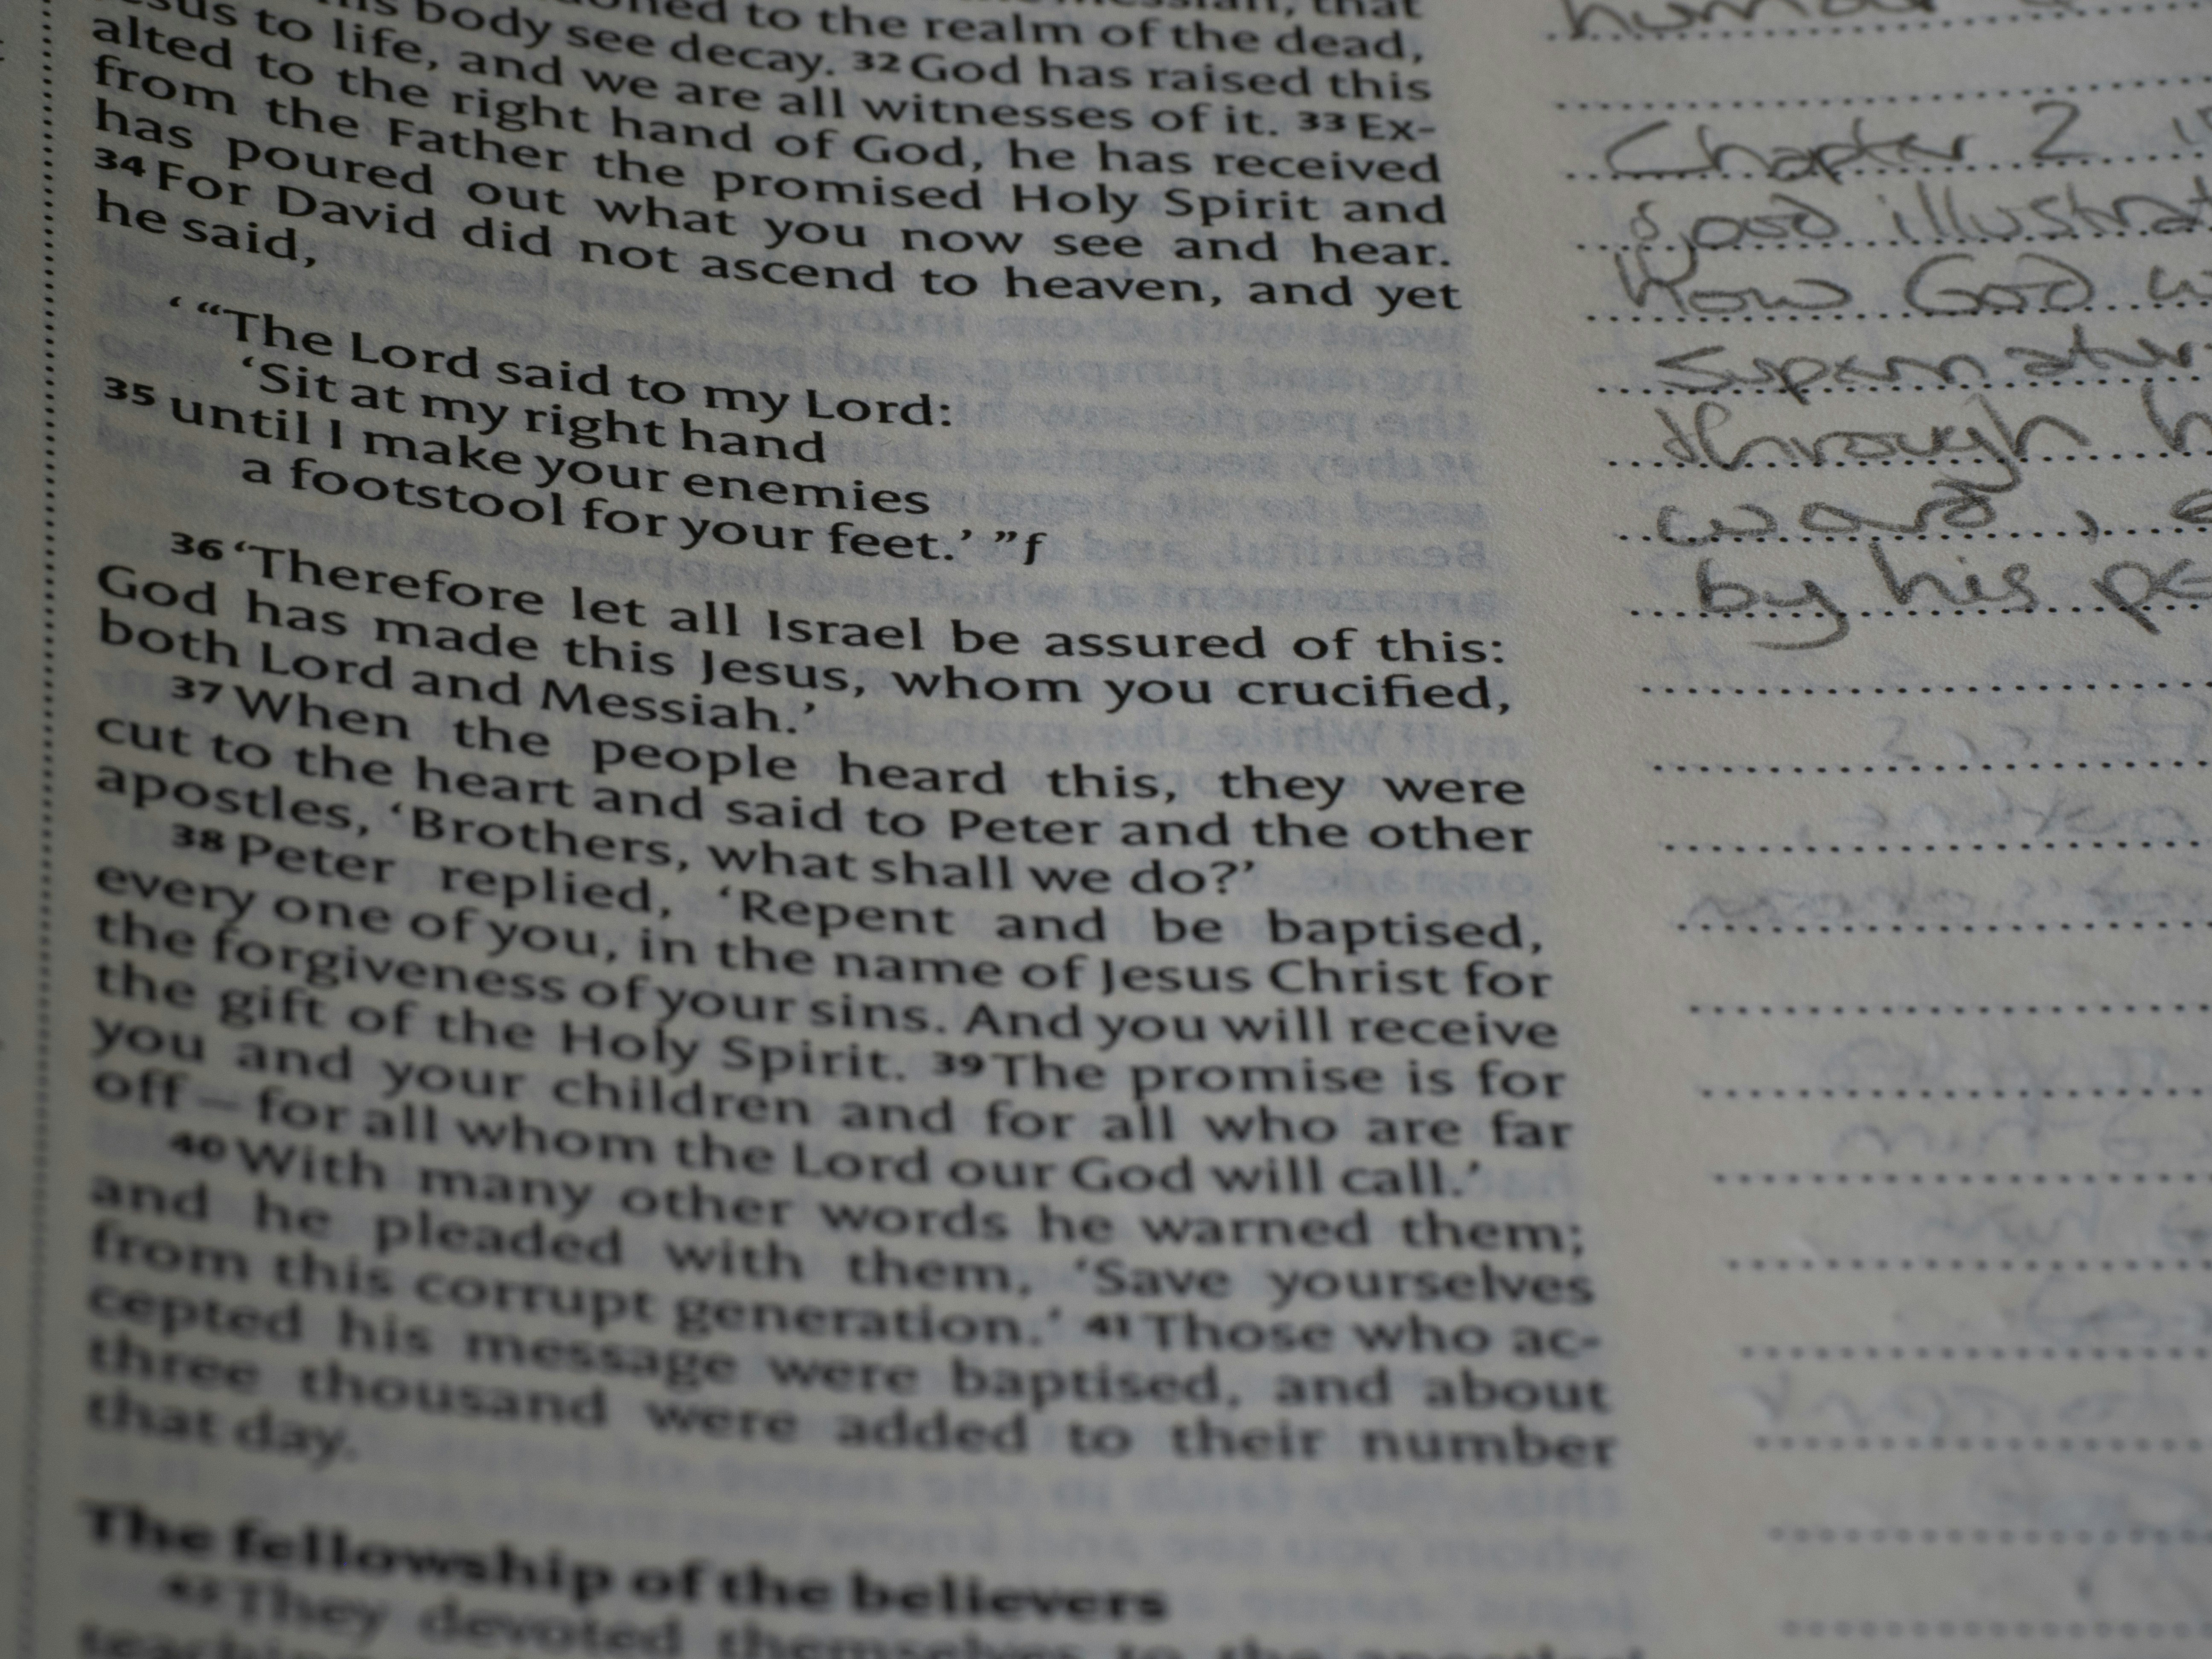 that
to the realm of the dead,
body see decay. 32 God has raised this
to life, and we are all witnesses of it. 33 Ex-
alted to the right hand of God, he has received
from the Father the promised Holy Spirit and
has poured out what you now see and hear.
34 For David did not ascend to heaven, and yet
he said,
‘ “The Lord said to my Lord:
‘Sit at my right hand
35 until I make your enemies
a footstool for your feet.’ ”f
36 ‘Therefore let all Israel be assured of this:
God has made this Jesus, whom you crucified,
both Lord and Messiah.’
37 When the people heard this, they were
cut to the heart and said to Peter and the other
apostles, ‘Brothers, what shall we do?’
38 Peter replied, ‘Repent and be baptised,
every one of you, in the name of Jesus Christ for
the forgiveness of your sins. And you will receive
the gift of the Holy Spirit. 39 The promise is for
you and your children and for all who are far
off – for all whom the Lord our God will call.’
40 With many other words he warned them;
and he pleaded with them, ‘Save yourselves
from this corrupt generation.’ 41 Those who ac-
cepted his message were baptised, and about
three thousand were added to their number
that day.
The fellowship of the believers
They devoted themselves to the
Chapter 2
good
How God
through
word,
by his